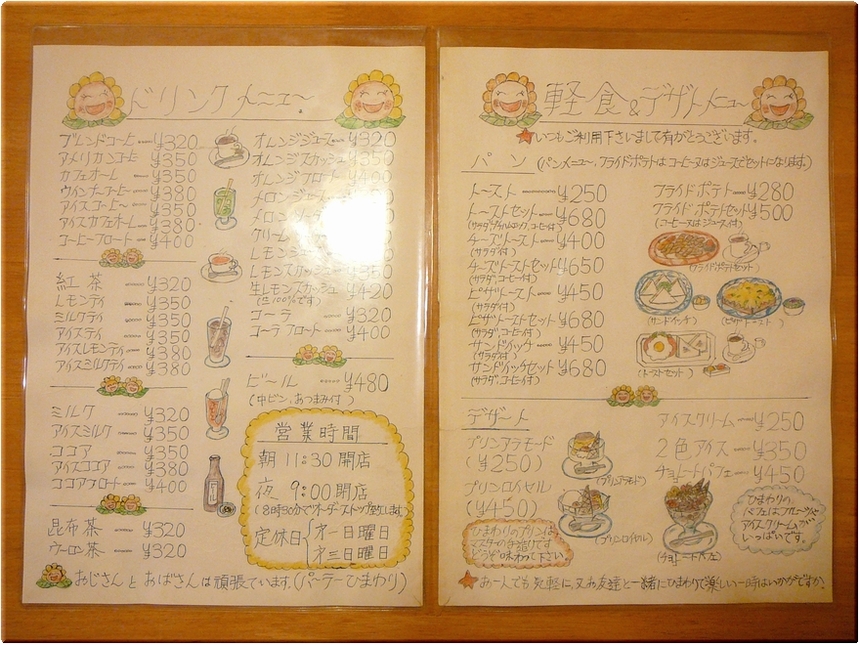 ドリンクメニュー
ブレンドコーヒー ¥320
アメリカンコーヒー ¥350
カフェオーレ ¥350
ウインナーコーヒー ¥380
アイスコーヒー ¥350
アイスカフェオーレ ¥380
コーヒーフロート ¥400
紅茶 ¥320
レモンティ ¥350
ミルクティ ¥350
アイスティ ¥350
アイスレモンティ ¥380
アイスミルクティ ¥380
ミルク ¥320
アイスミルク ¥350
ココア ¥350
アイスココア ¥380
ココアフロート ¥400
昆布茶 ¥320
ウーロン茶 ¥320
オレンジジュース ¥320
オレンジスカッシュ ¥350
オレンジフロート ¥400
メロン
メロン
クリーム
レモン
レモンスカッシュ ¥350
生レモンスカッシュ ¥420
(生100%です)
コーラ ¥320
コーラフロート ¥400
ビール ¥480
(中ビン、おつまみ付)
営業時間
朝 11:30 開店
夜 9:00 閉店
(8時30分でオーダーストップ致します)
定休日 第一日曜日
第三日曜日
おじさんとおばさんは頑張ています。(パーラーひまわり)
軽食&デザートメニュー
いつもご利用下さいまして有がとうございます。
パン (パンメニュー、フライドポテトはコーヒー又はジュースとセットになります。)
トースト ¥250
トーストセット ¥680
チーズトースト ¥400
(サラダ付)
チーズトーストセット ¥650
(サラダ、コーヒー付)
ピザトースト ¥450
(サラダ付)
ピザトーストセット ¥680
(サラダ、コーヒー付)
サンドイッチ ¥450
(サラダ付)
サンドイッチセット ¥680
(サラダ、コーヒー付)
フライドポテト ¥280
フライドポテトセット ¥500
(コーヒー又はジュース付)
(フライドポテトセット)
(サンドイッチ)
(ピザトースト)
(トーストセット)
デザート
プリンアラモード
(¥250)
プリンロイヤル
(¥450)
(プリンアラモード)
(プリンロイヤル)
ひまわりのプリンは
マスターの手作りです
どうぞ味わって下さい
アイスクリーム ¥250
2色アイス ¥350
チョコレートパフェ ¥450
(チョコレートパフェ)
ひまわりの
パフェはフルーツと
アイスクリームが
いっぱいです。
お一人でも気軽に、又お友達と一緒にひまわりで楽しい一時はいかがですか。